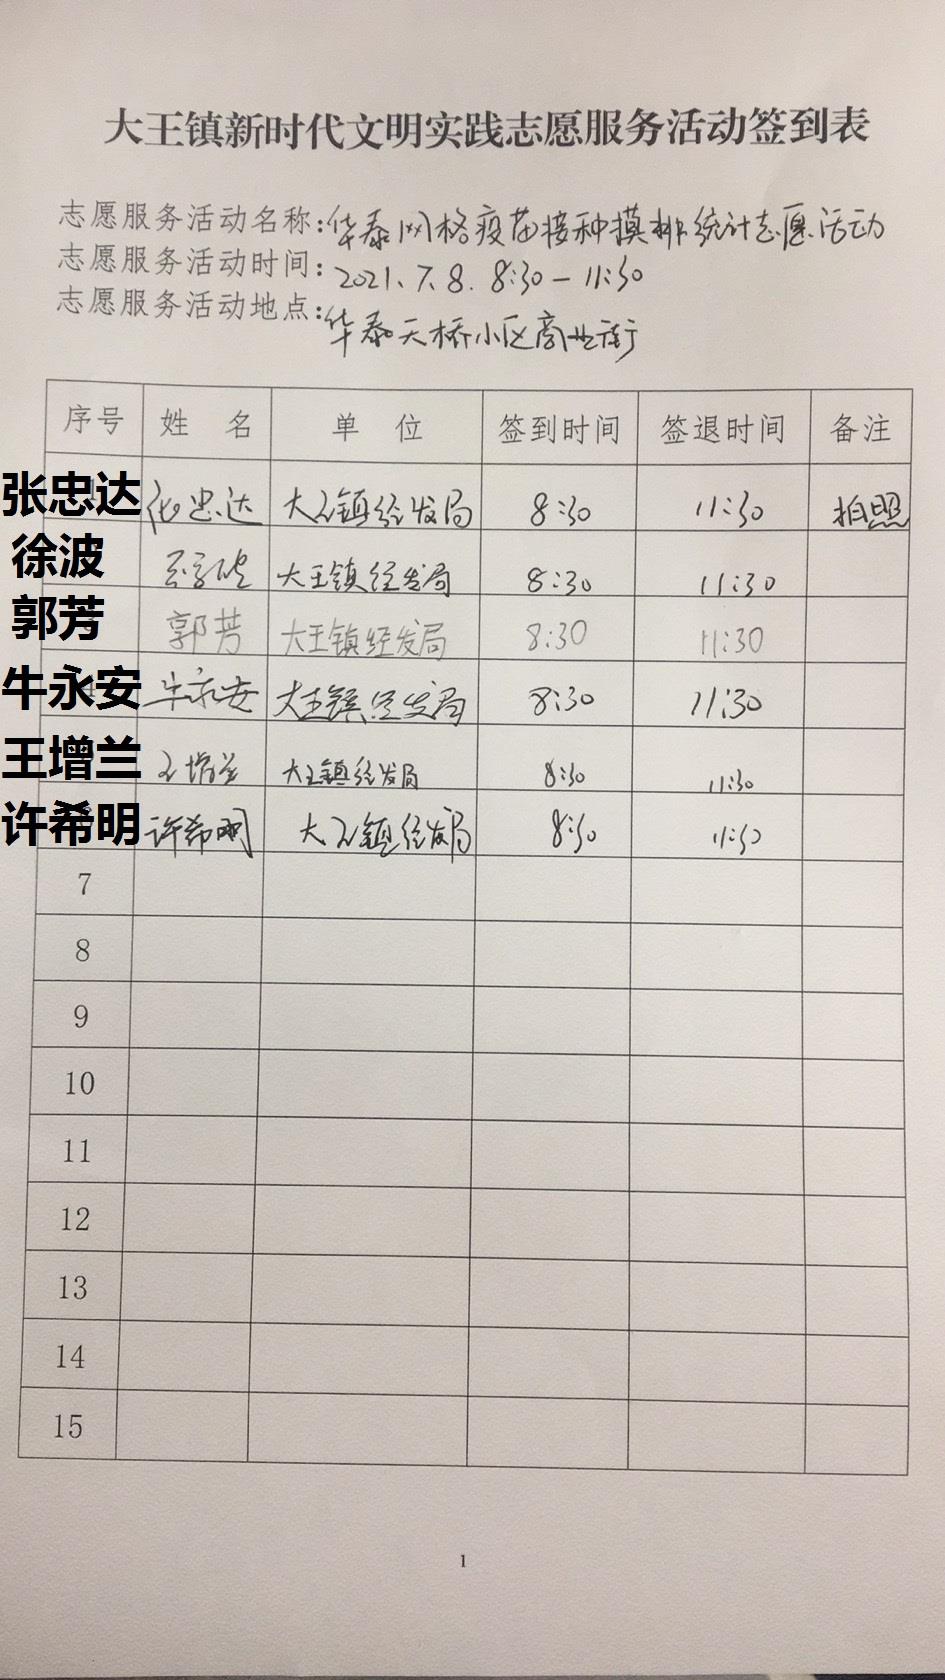 大王镇新时代文明实践志愿服务活动签到表
志愿服务活动名称:华泰网格疫苗接种摸排统计志愿活动
志愿服务活动时间:2021.7.8. 8:30-11:30
志愿服务活动地点:华泰天桥小区商业街
序号 姓 名 单 位 签到时间 签退时间 备注
张忠达 张忠达 大王镇经发局 8:30 11:30 拍照
徐波 大王镇经发局 8:30 11:30
郭芳 郭芳 大王镇经发局 8:30 11:30
牛永安 牛永安 大王镇经发局 8:30 11:30
王增兰 王增兰 大王镇经发局 8:30 11:30
许希明 许希明 大王镇经发局 8:30 11:30
7
8
9
10
11
12
13
14
15
1